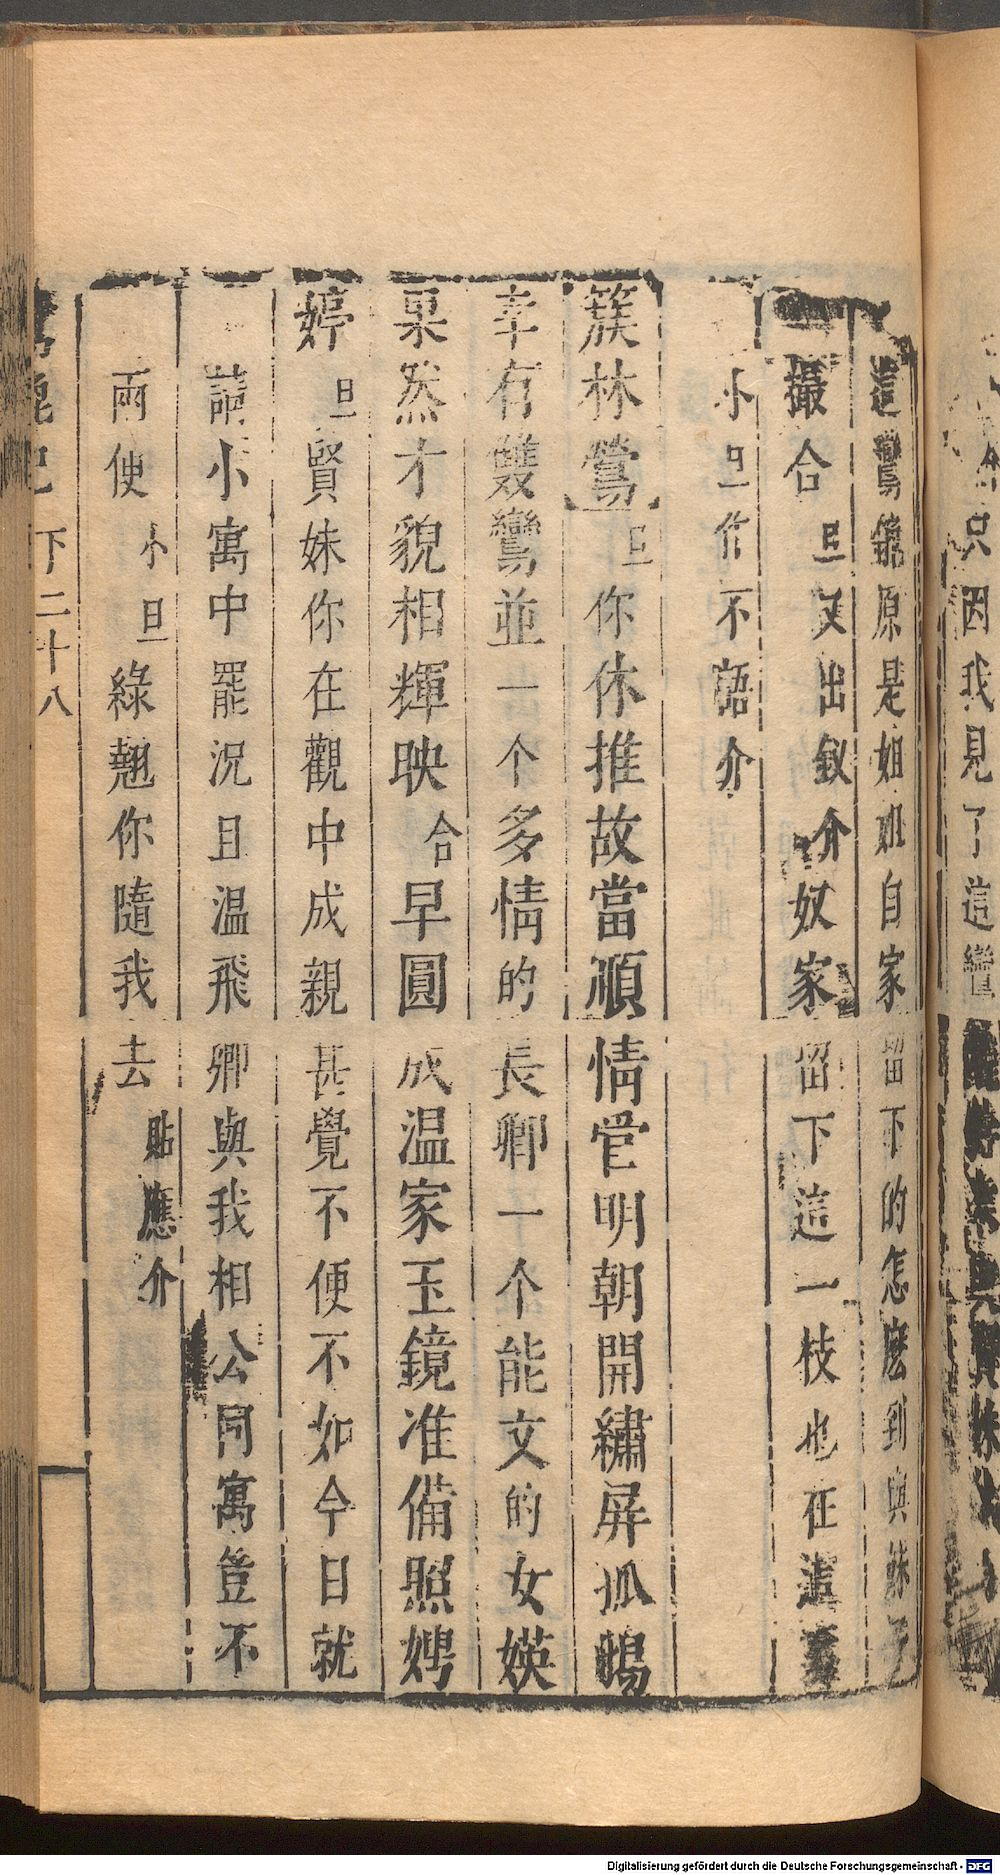 只因我見了這鸞
這鸞鏡原是姐姐自家留下的怎麽到與妹子
撮合 旦又出釵介 奴家留下這一枝也在這裏
小旦作不語介
簇林鶯 旦 你休推故當順情管明朝開繡屏孤鸞
幸有雙鸞並一个多情的長卿一个能文的女媖
果然才貌相輝映 合 早圓成温家玉鏡准備照娉
婷 旦 賢妹你在觀中成親甚覺不便不如今日就
請小寓中罷況且温飛卿與我相公同寓豈不
兩便 小旦 綠翹你隨我去 貼應介
下二十八
Digitalisierung gefördert durch die Deutsche Forschungsgemeinschaft - DFG